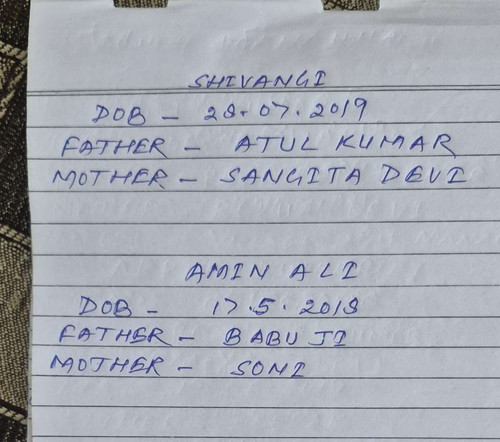 SHIVANGI
DOB - 28.07.2019
FATHER - ATUL KUMAR
MOTHER - SANGITA DEVI
AMIN ALI
DOB - 17.5.2018
FATHER - BABU JI
MOTHER - SONI